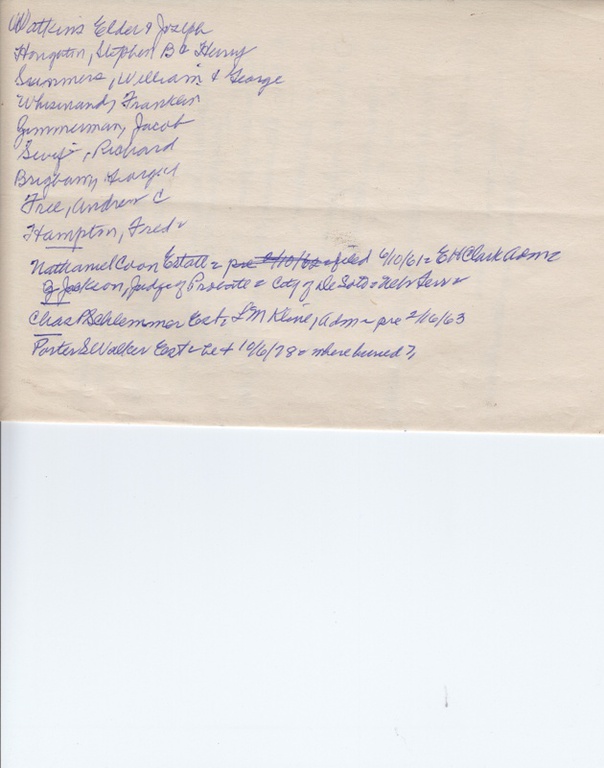 Watkins Elder & Joseph
Houghton, Stephen B & Henry
Summers, William & George
Whisinand, Franklin
Zimmerman, Jacob
Swift, Richard
Brigham, George
Free, Andrew C
Hampton, Fred =
Nathaniel Coon Estate = pre 2/10/62 = filed 6/10/61 = EH Clark Adm =
Jackson, Judge of Probate = City of De Soto = Neb Terr =
Chas P Schlemmer Est = L M Kline, Adm = pre 2/16/63
Porter S Walker Est = Let 10/6/78 = where buried ?,